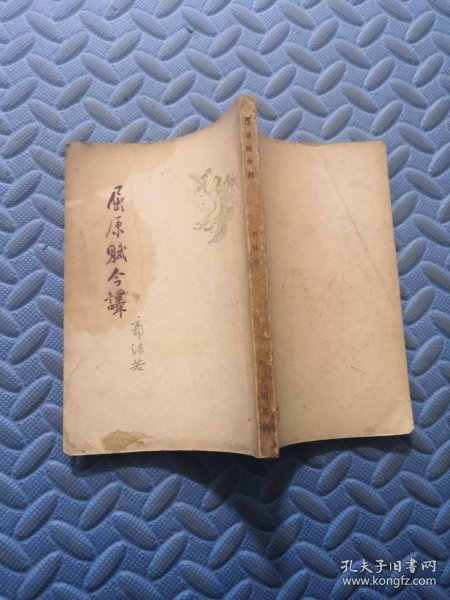 屈原賦今譯
郭沫若
屈原賦今譯
郭沫若
孔夫子旧书网
www.kongfz.com